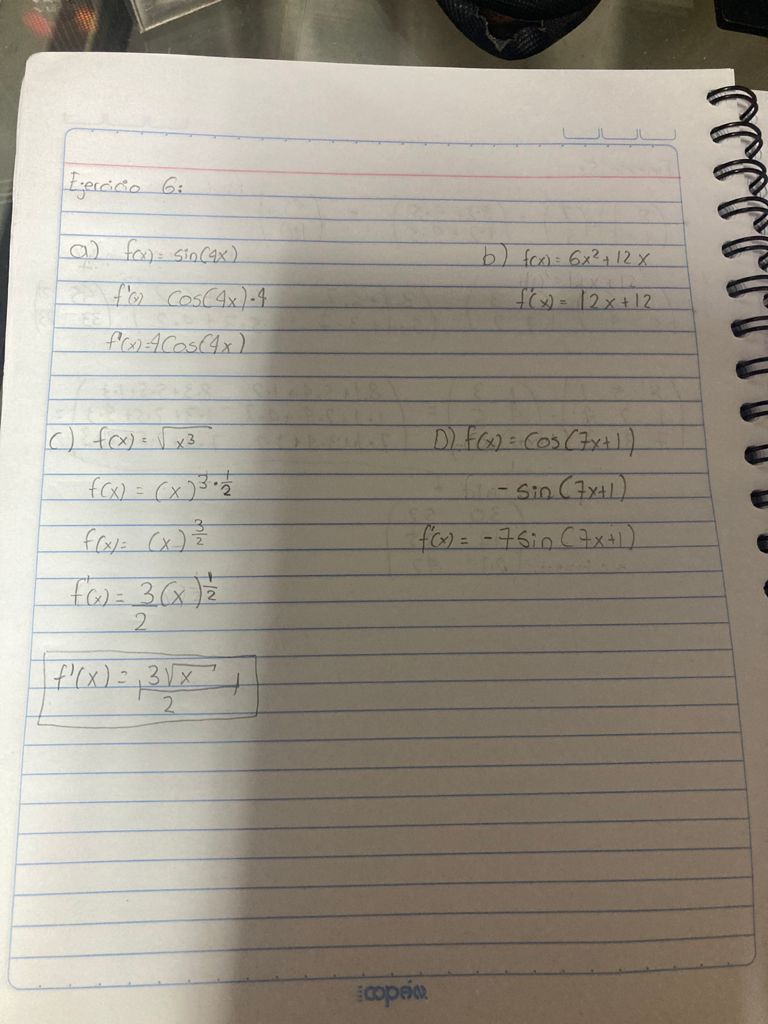 Ejercicio 6:
a) f(x)= sin(4x)
f'(x) cos(4x)·4
f'(x)=4Cos(4x)
b) f(x)= 6x²+12x
f'(x)= 12x+12
C) f(x)= √x³
f(x) = (x)^3·1/2
f(x)= (x)^3/2
f'(x) = 3/2(x)^1/2
f'(x) = 3√x/2
D) f(x)= Cos(7x+1)
- sin(7x+1)
f'(x)= -7sin(7x+1)
copán